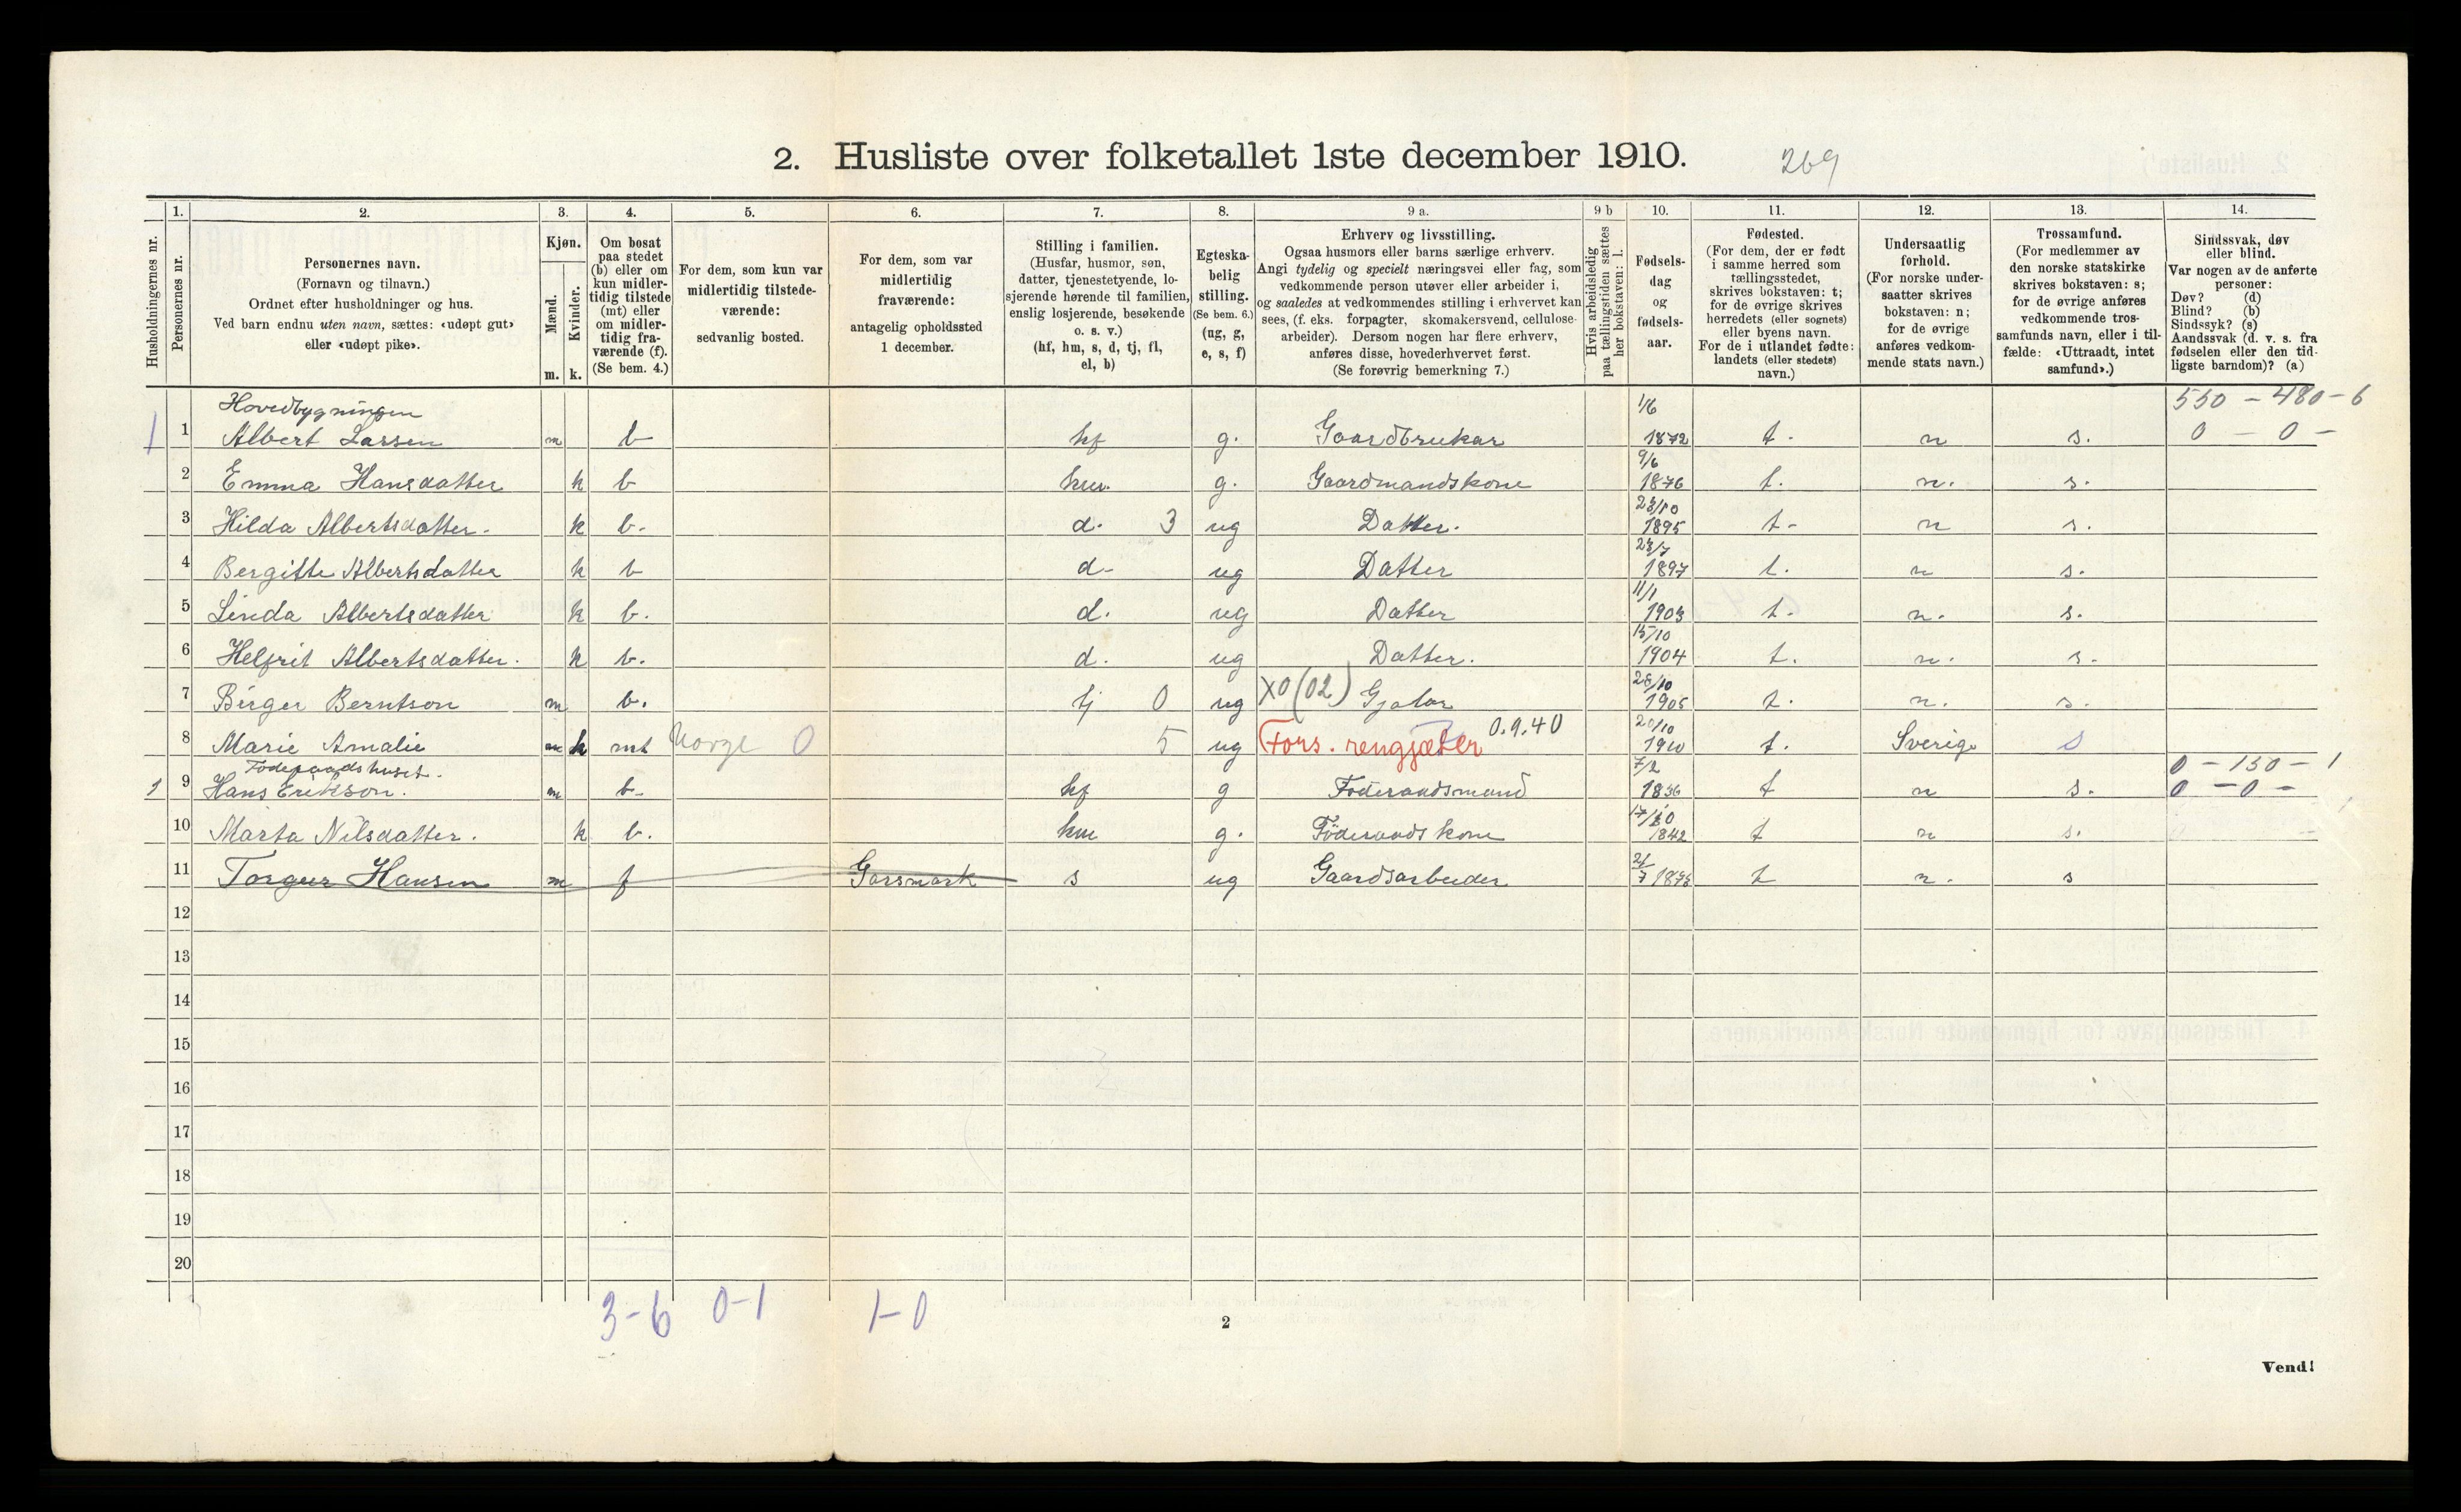 2. Husliste over folketallet 1ste december 1910.
269
Husholdningernes nr.
1.
Personernes nr.
2.
Personernes navn.
(Fornavn og tilnavn.)
Ordnet efter husholdninger og hus.
Ved barn endnu uten navn, sættes: «udøpt gut»
eller «udøpt pike».
3.
Kjøn.
Mænd.
Kvinder.
m. k.
4.
Om bosat
paa stedet
(b) eller om
kun midler-
tidig tilstede
(mt) eller
om midler-
tidig fra-
værende (f).
(Se bem. 4.)
5.
For dem, som kun var
midlertidig tilstede-
værende:
sedvanlig bosted.
6.
For dem, som var
midlertidig
fraværende:
antagelig opholdssted
1 december.
7.
Stilling i familien.
(Husfar, husmor, søn,
datter, tjenestetyende, lo-
sjerende hørende til familien,
enslig losjerende, besøkende
o. s. v.)
(hf, hm, s, d, tj, fl,
el, b)
8.
Egteska-
belig
stilling.
(Se bem. 6.)
(ug, g,
e, s, f)
9 a.
Erhverv og livsstilling.
Ogsaa husmors eller barns særlige erhverv.
Angi tydelig og specielt næringsvei eller fag, som
vedkommende person utøver eller arbeider i,
og saaledes at vedkommendes stilling i erhvervet kan
sees, (f. eks. forpagter, skomakersvend, cellulose-
arbeider). Dersom nogen har flere erhverv,
anføres disse, hovederhvervet først.
(Se forøvrig bemerkning 7.)
9 b
Hvis arbeidsledig
paa tællingstiden sættes
her bokstaven: l.
10.
Fødsels-
dag
og
fødsels-
aar.
11.
Fødested.
(For dem, der er født
i samme herred som
tællingsstedet,
skrives bokstaven: t;
for de øvrige skrives
herredets (eller sognets)
eller byens navn.
For de i utlandet fødte:
landets (eller stedets)
navn.)
12.
Undersaatlig
forhold.
(For norske under-
saatter skrives
bokstaven: n;
for de øvrige
anføres vedkom-
mende stats navn.)
13.
Trossamfund.
(For medlemmer av
den norske statskirke
skrives bokstaven: s;
for de øvrige anføres
vedkommende tros-
samfunds navn, eller i til-
fælde: «Uttraadt, intet
samfund».)
14.
Sindssvak, døv
eller blind.
Var nogen av de anførte
personer:
Døv? (d)
Blind? (b)
Sindssyk? (s)
Aandssvak (d. v. s. fra
fødselen eller den tid-
ligste barndom)? (a)
Hovedbygningen 1/6 550 - 480 - 6
1 1 Albert Larsen m b hf g. Gaardbruker 1872 t. n s. 0 - 0 -
9/6
2 Emma Hansdatter k b hm. g. Gaardmandskone 1876 t. n. s.
23/10
3 Hilda Albertsdatter. k b. d. 3 ug Datter. 1895 t. n s.
23/7
4 Bergitte Albertsdatter k b d. ug Datter 1897 t. n s.
11/1
5 Linda Albertsdatter k b. d. ug Datter 1903 t. n. s.
15/10
6 Helfrit Albertsdatter. k b. d. ug Datter. 1904 t. n. s.
X0 (02) 28/10
7 Birger Berntson m b. tj 0 ug 1905 t. n. s.
0.9.40 20/10
8 Marie Amalie m k mt Norge 0 5 ug Fors. 1910 t. Sverige S
Föderaadshuset. 7/2 0 - 150 - 1
9 Hans Erikson. m b. hf g Föderaadsmand 1836 t n s. 0 - 0 -
17/10
10 Marta Nilsdatter. k b. hm g. Föderaads kone 1842 t n s.
11 Torger Hansen m f Garsmark s ug Gaardsarbeider t n. s
12
13
14
15
16
17
18
19
20
3-6 0-1 1-0
2
Vend!